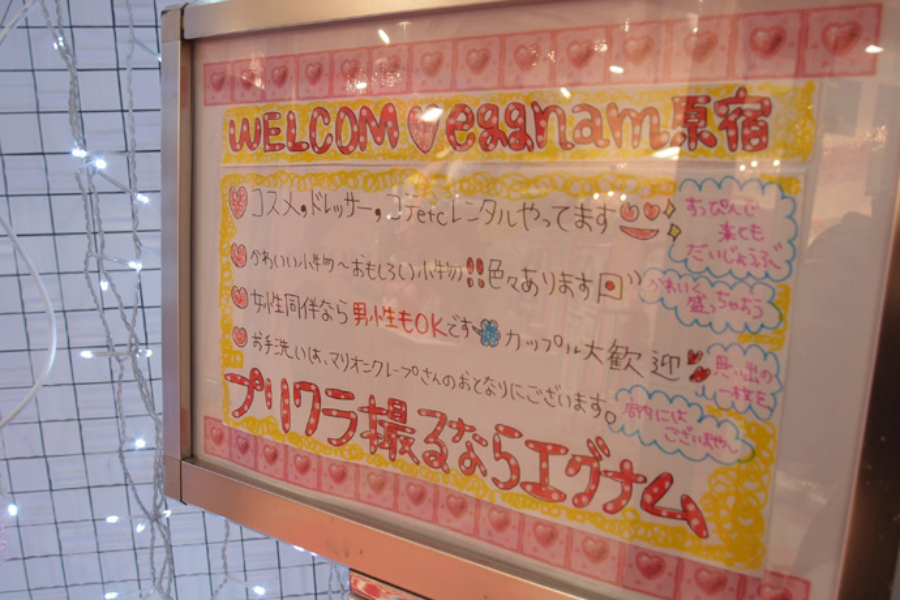 WELCOM eggnam原宿
コスメ,ドレッサー,コテetcレンタルやってます
すっぴんで
来ても
だいじょうぶ〜
かわいい小物〜おもしろい小物!!色々あります
かわいく
盛っちゃおう
女性同伴なら男性もOKです カップル大歓迎
思い出の
一枚を
お手洗いは、マリオンクレープさんのおとなりにございます。
店内には
ございません
プリクラ撮るならエグナム